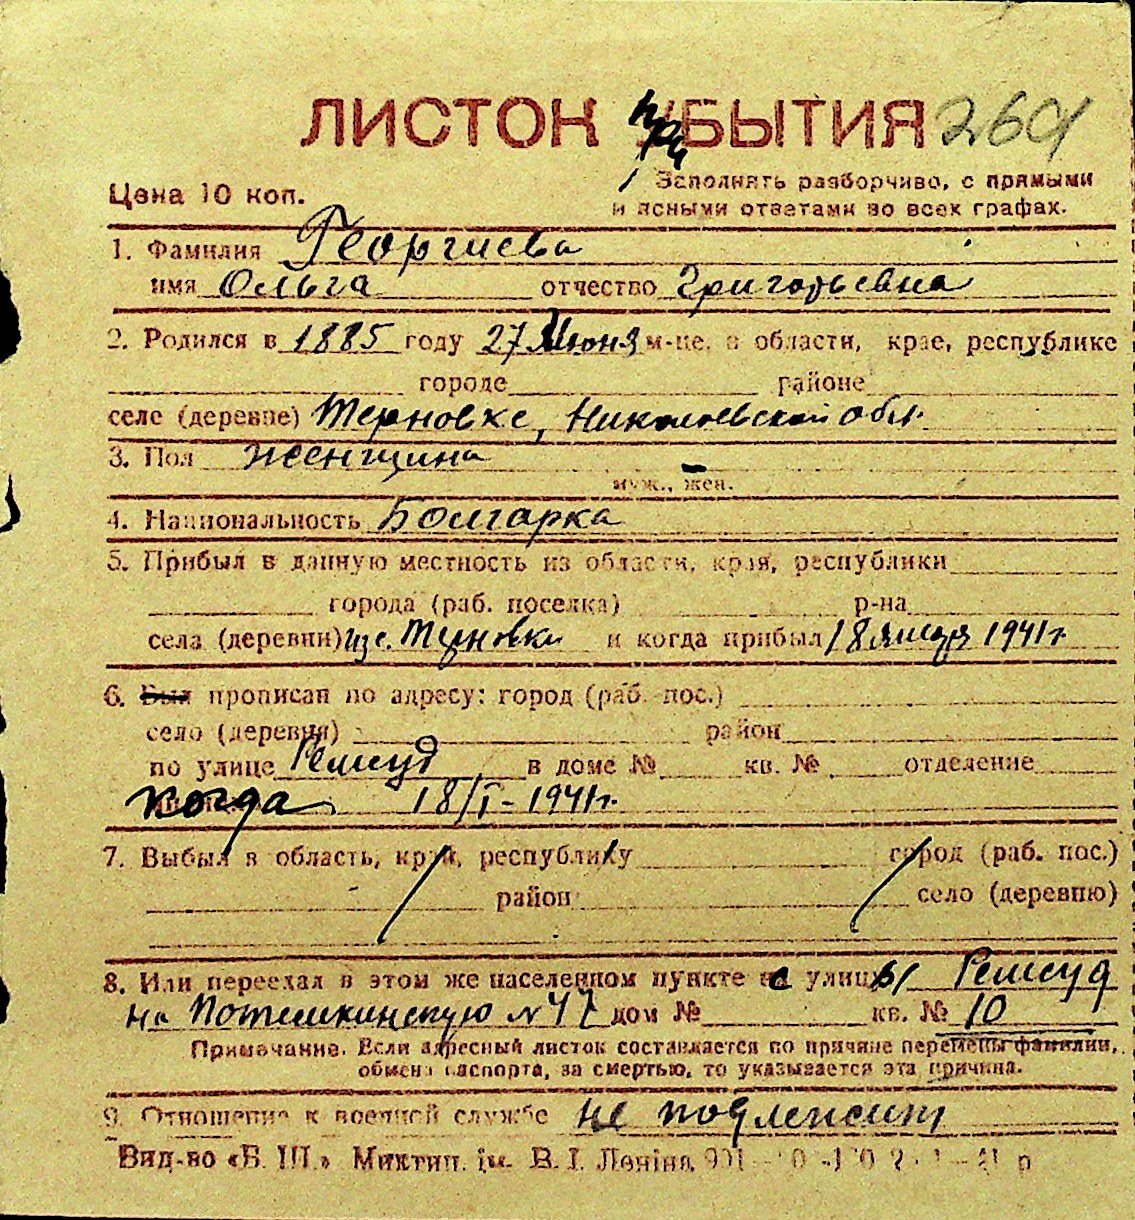 ЛИСТОК ПРИБЫТИЯ 269
Цена 10 коп.
Заполнять разборчиво, с прямыми
и ясными ответами во всех графах.
1. Фамилия Георгиева
имя Ольга отчество Григорьевна
2. Родился в 1885 году 27 Июня м-це, в области, крае, республике
городе районе
селе (деревне) Терновке, Николаевской обл.
3. Пол женщина
муж., жен.
4. Национальность Болгарка
5. Прибыл в данную местность из области, края, республики
города (раб. поселка) р-на
села (деревни) из с. Терновки и когда прибыл 18 января 1941 г
6. Был прописан по адресу: город (раб. пос.)
село (деревня) район
по улице Ремсуд в доме № кв. № отделение
когда 18/I - 1941 г.
7. Выбыл в область, край, республику город (раб. пос.)
район село (деревню)
8. Или переехал в этом же населенном пункте с улицы Ремсуд
на Потемкинскую № 47 дом № кв. № 10
Примечание. Если адресный листок составляется по причине перемены фамилии,
обмена паспорта, за смертью, то указывается эта причина.
9. Отношение к военной службе не подлежит
Вид-во «Б. Ш.» Миктип. ім. В. І. Леніна